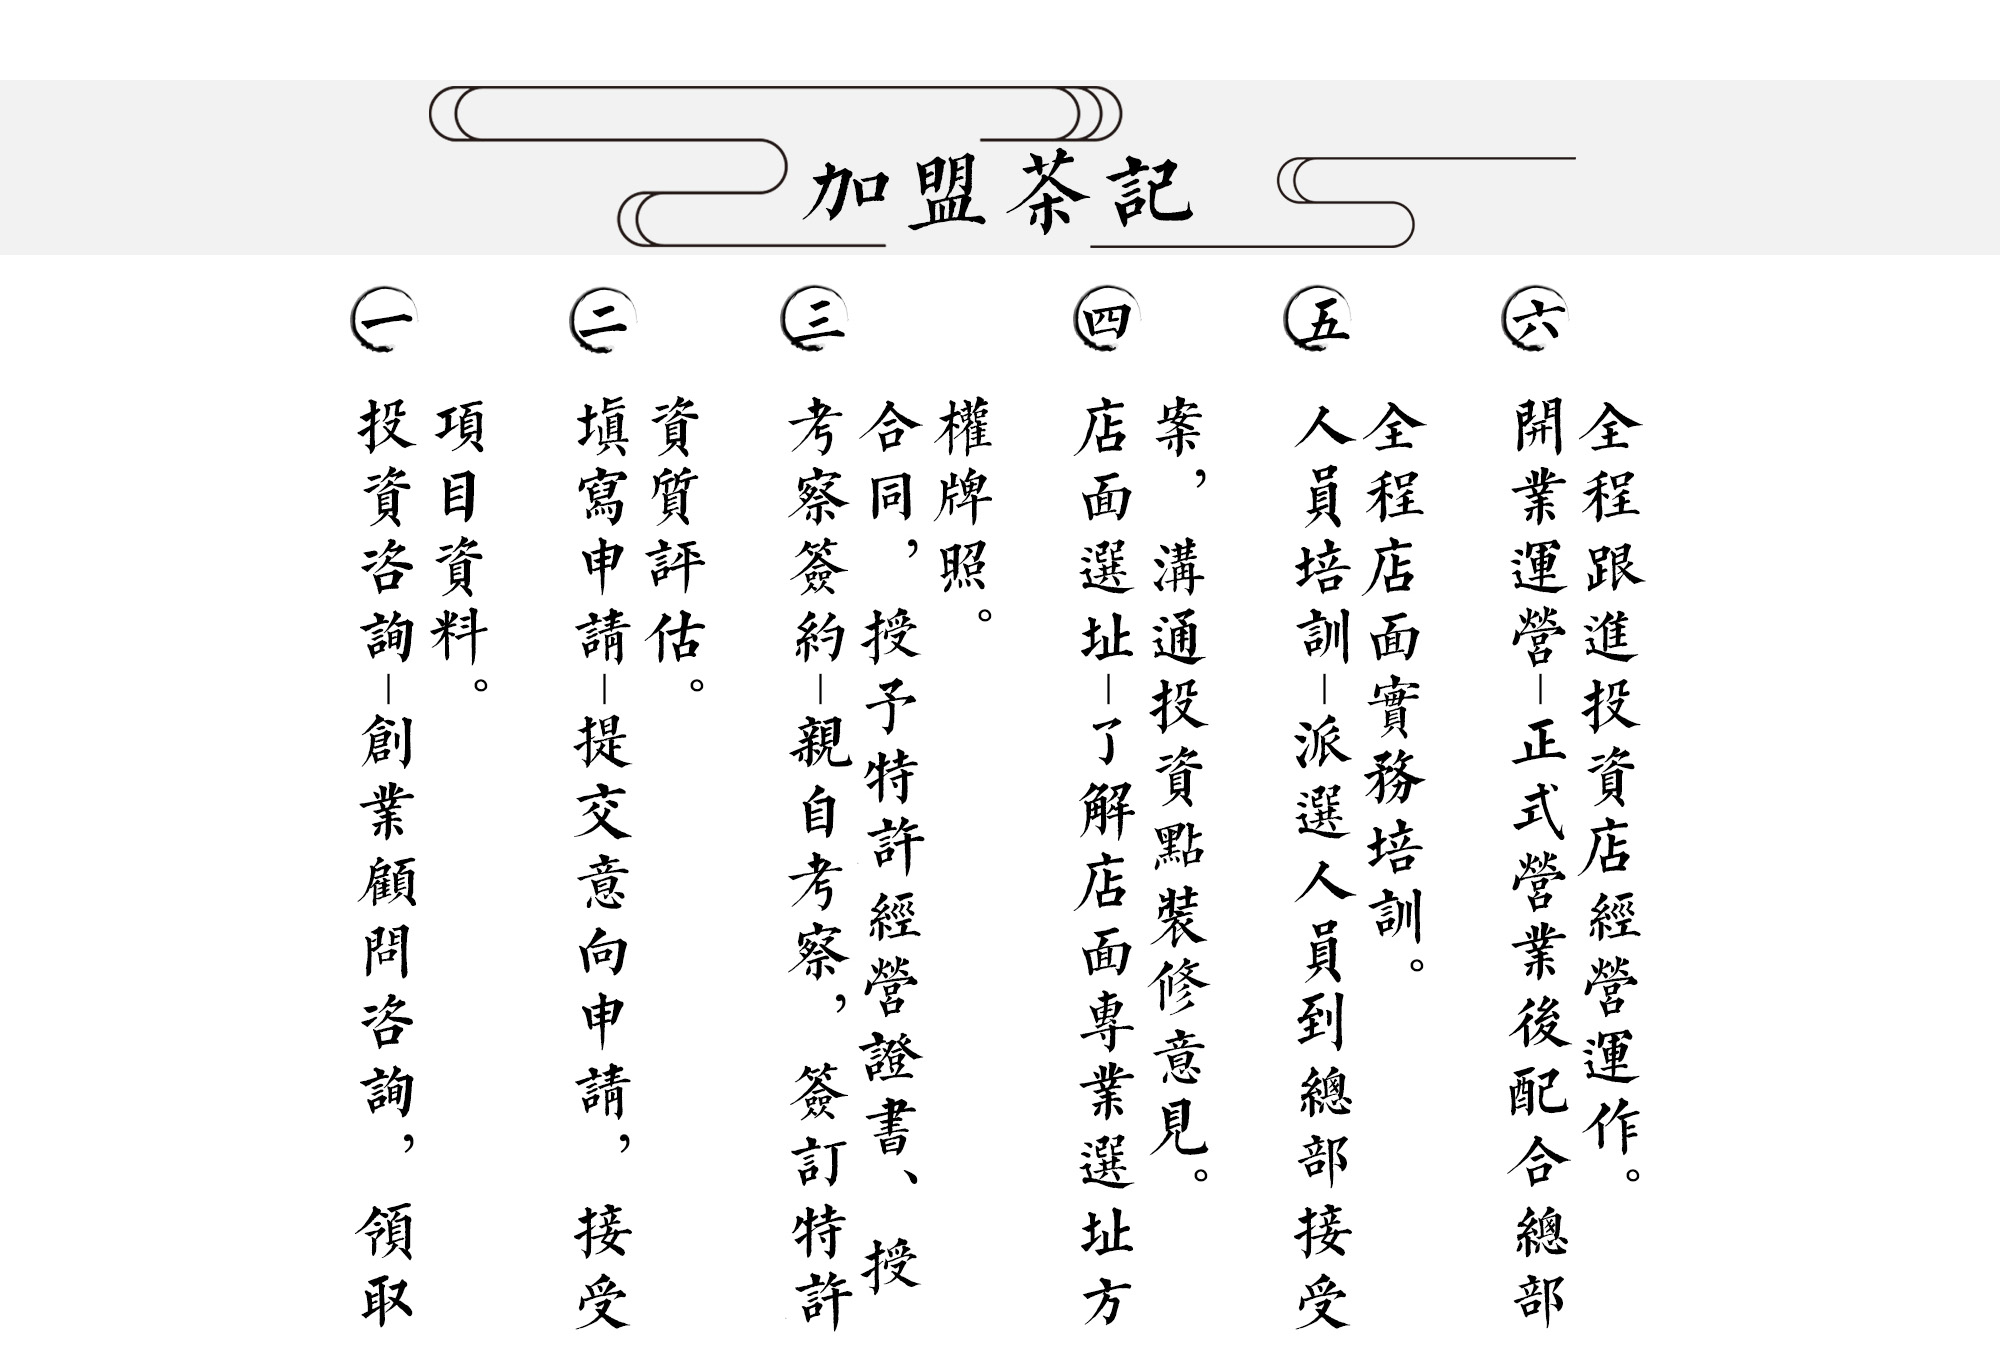 加盟茶記
一
投資咨詢—創業顧問咨詢，領取
項目資料。
二
填寫申請—提交意向申請，接受
資質評估。
三
考察簽約—親自考察，簽訂特許
合同，授予特許經營證書、授
權牌照。
四
店面選址—了解店面專業選址方
案，溝通投資點裝修意見。
五
人員培訓—派選人員到總部接受
全程店面實務培訓。
六
開業運營—正式營業後配合總部
全程跟進投資店經營運作。